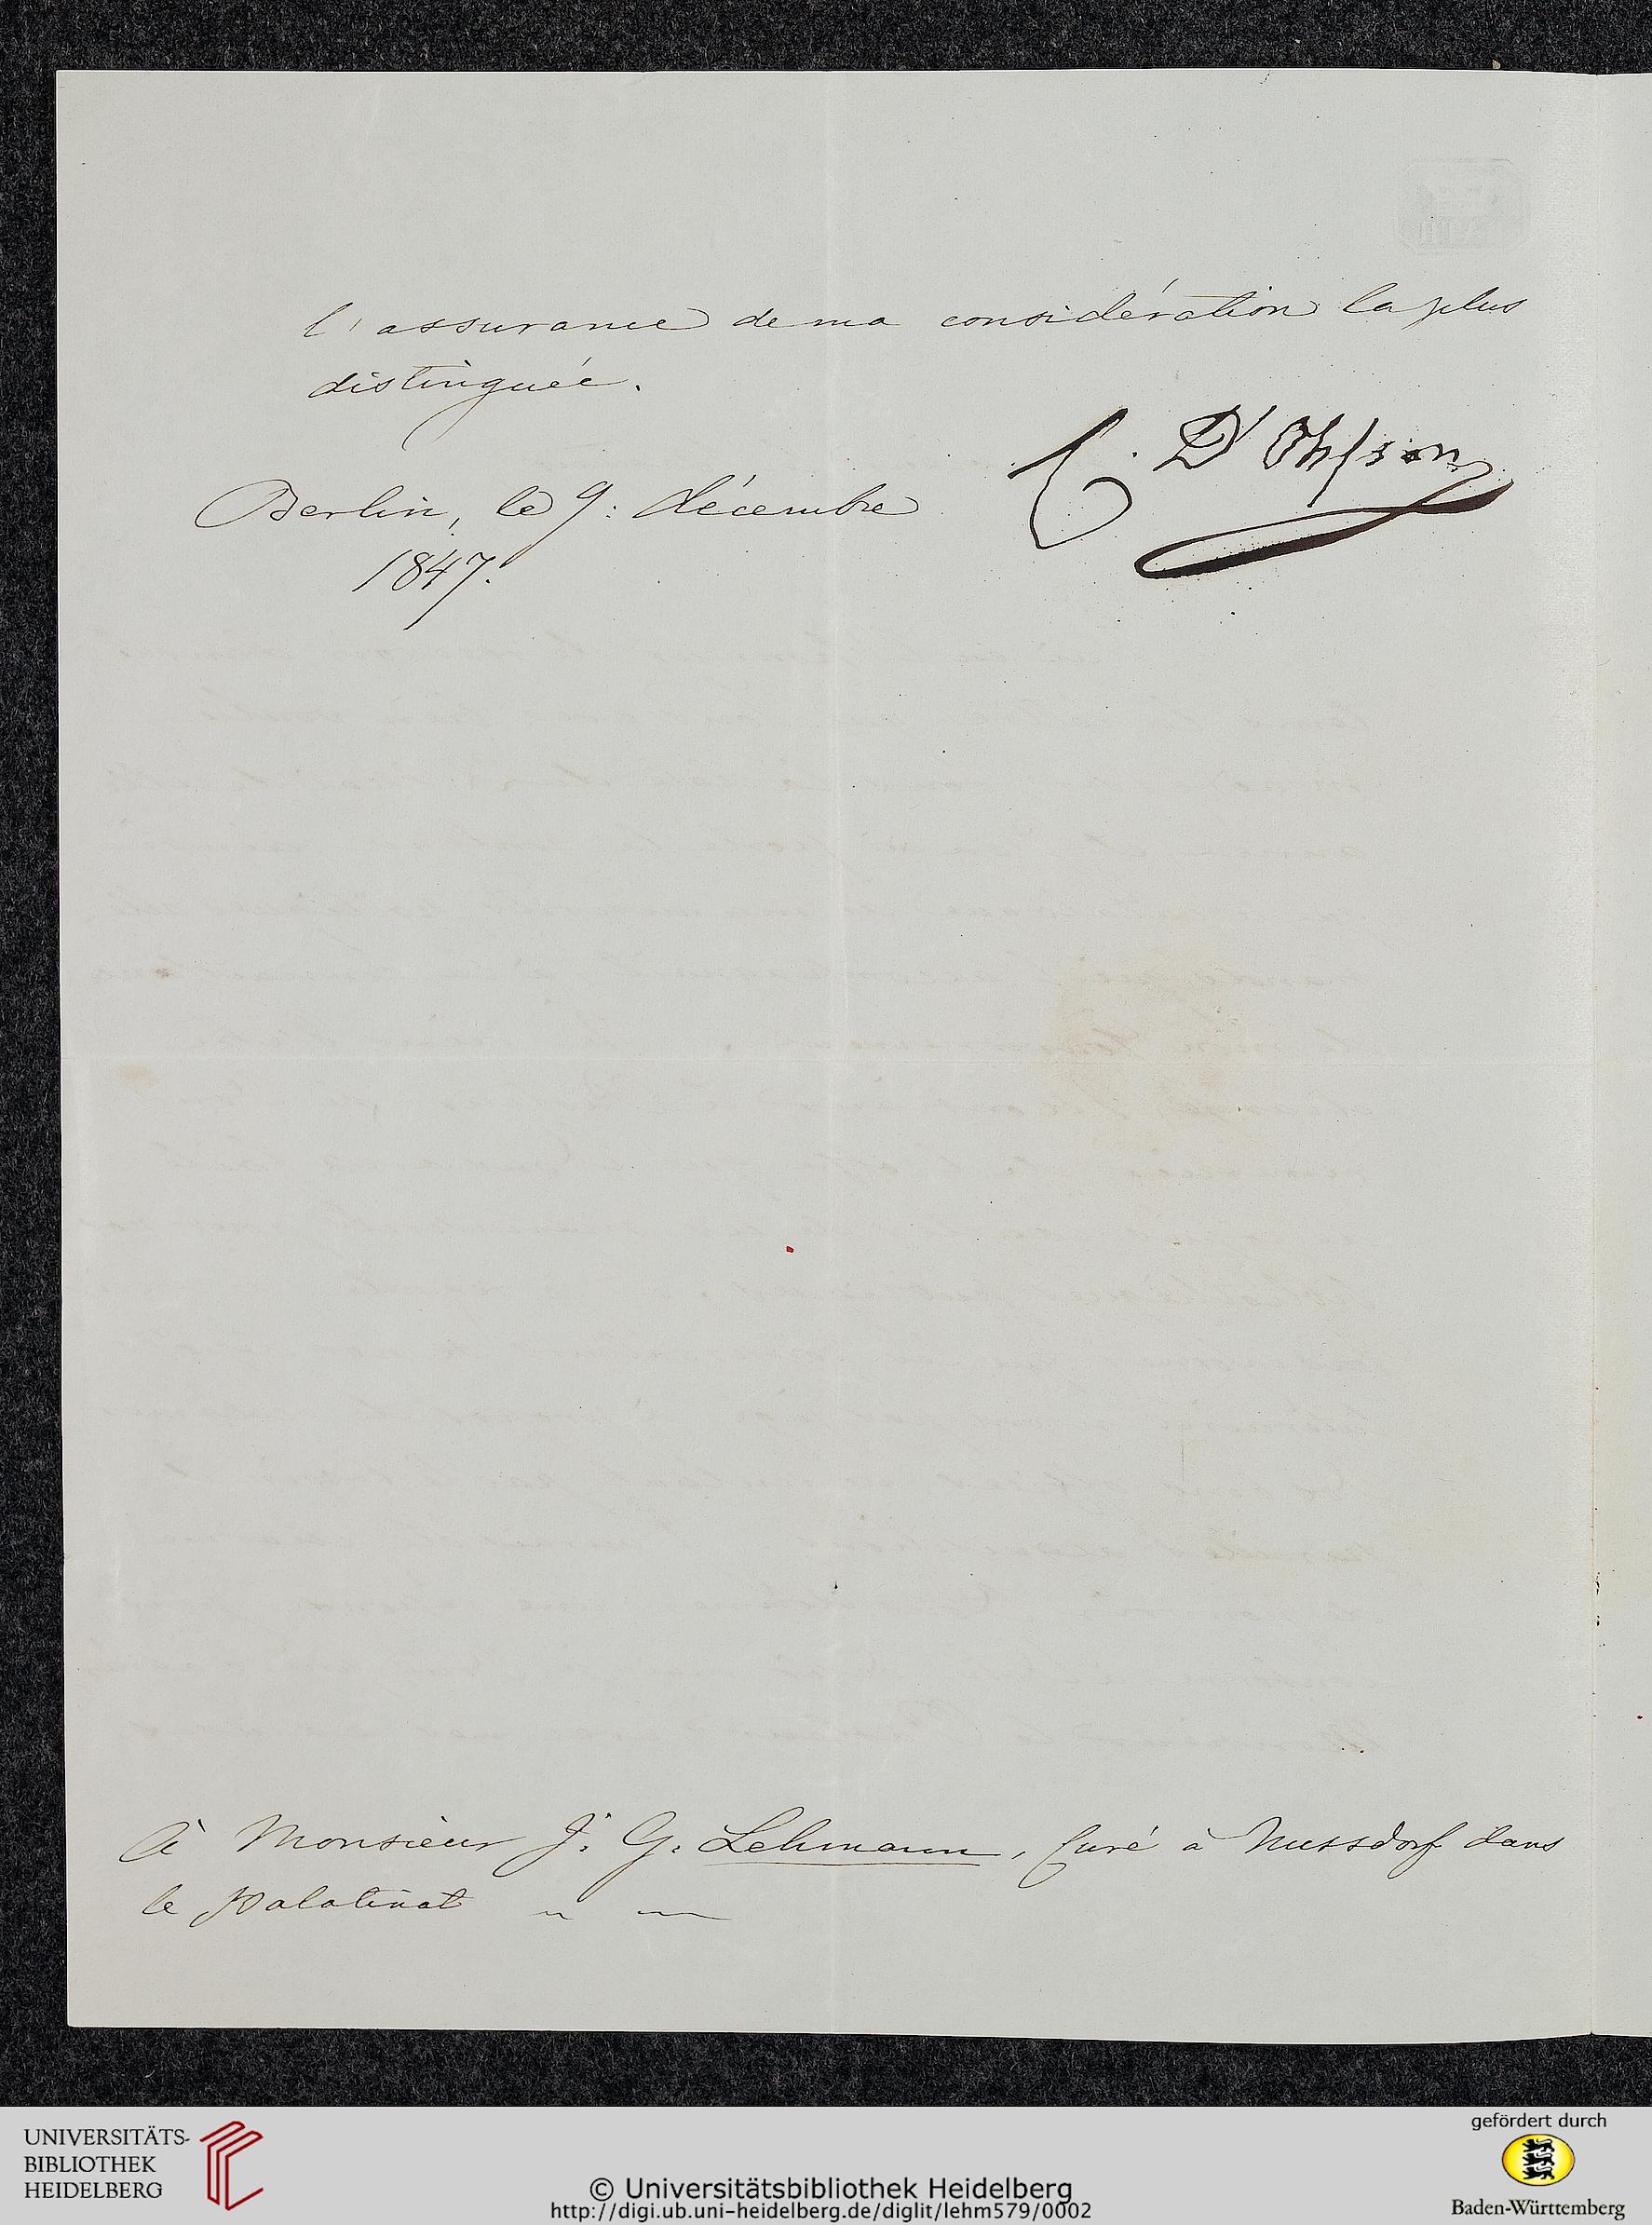 l'assurance de ma considération la plus
distinguée.
C. D'Ohsson
Berlin, le 9: décembre
1847.
À Monsieur J. G. Lehmann, Curé à Nussdorf dans
le Palatinat
UNIVERSITÄTS-
BIBLIOTHEK
HEIDELBERG
© Universitätsbibliothek Heidelberg
http://digi.ub.uni-heidelberg.de/diglit/lehm579/0002
gefördert durch
Baden-Württemberg